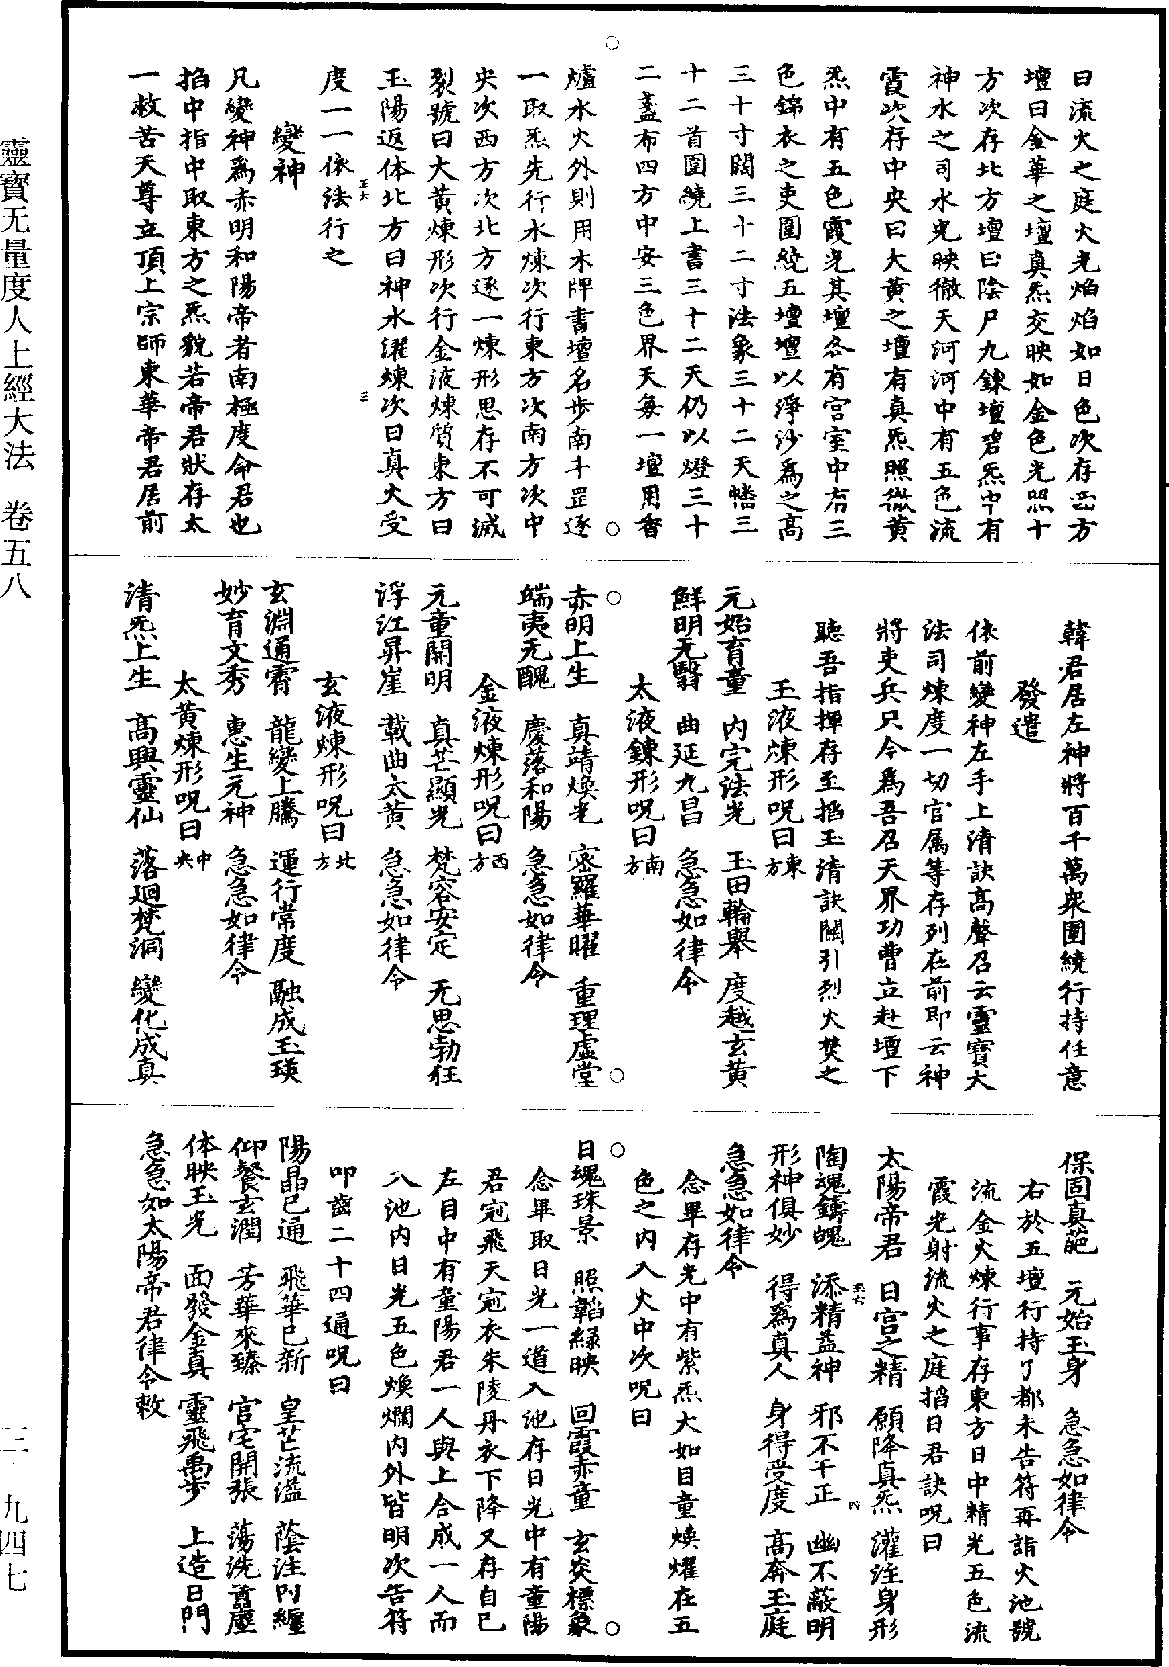 曰流火之庭火光焰焰如日色次存西方
壇曰金華之壇真炁交映如金色光照十
方次存北方壇曰陰尸九鍊壇碧炁中有
神水之司水光映徹天河河中有五色流
霞次存中央曰大黃之壇有真炁照徹黃
炁中有五色霞光其壇各有宮室中有三
色錦衣之吏圍繞五壇壇以淨沙為之高
三十寸闊三十二寸法象三十二天幡三
十二首圍繞上書三十二天仍以燈三十
二盞布四方中安三色界天每一壇用香
爐水火外則用木牌書壇名步南斗罡逐
一取炁先行水煉次行東方次南方次中
央次西方次北方逐一煉形思存不可滅
裂號曰大黃煉形次行金液煉質東方曰
玉陽返体北方曰神水濯煉次曰真火受
度一一依法行之
變神
凡變神為赤明和陽帝者南極度命君也
掐中指中取東方之炁貌若帝君狀存太
一救苦天尊立頂上宗師東華帝君居前
韓君居左神將百千萬衆圍繞行持任意
發遣
依前變神左手上清訣高聲召云靈寶大
法司煉度一切官属等存列在前即云神
將吏兵只今為吾召天界功曹立赴壇下
聽吾指揮存至掐玉清訣閉引烈火焚之
玉液煉形呪曰東方
元始育童 內完法光 玉田輪舉 度越玄黃
鮮明无翳 曲延九昌 急急如律令
太液鍊形呪曰南方
赤明上生 真靖煥光 密羅華曜 重理虛堂
端夷无醜 慶落和陽 急急如律令
金液煉形呪曰西方
元童開明 真芒顯光 梵容安定 无思勃狂
浮江昇崖 載曲太黃 急急如律令
玄液煉形呪曰北方
玄淵通霄 龍變上騰 運行常度 融成玉瑛
妙育文秀 惠生元神 急急如律令
太黃煉形呪曰中央
清炁上生 高興靈仙 落迴梵洞 變化成真
保固真葩 元始玉身 急急如律令
右於五壇行持了都未告符再詣火池號
流金火煉行事存東方日中精光五色流
霞光射流火之庭掐日君訣呪曰
太陽帝君 日宮之精 願降真炁 灌注身形
陶魂鑄魄 添精益神 邪不干正 幽不蔽明
形神俱妙 得為真人 身得受度 高奔玉庭
急急如律令
念畢存光中有紫炁大如目童煥燿在五
色之內入火中次呪曰
日魂珠景 照韜綠映 回霞赤童 玄炎標象
念畢取日光一道入池存日光中有童陽
君冠飛天冠衣朱陵丹衣下降又存自己
左目中有童陽君一人與上合成一人而
入池內日光五色煥爛內外皆明次告符
叩齒二十四通呪曰
陽晶已通 飛華已新 皇芒流溢 蔭注內纏
仰餐玄潤 芳華來臻 官宅開張 蕩洗舊塵
体映玉光 面發金真 靈飛禹步 上造日門
急急如太陽帝君律令敕
靈寶无量度人上經大法 卷五八
三 九四七